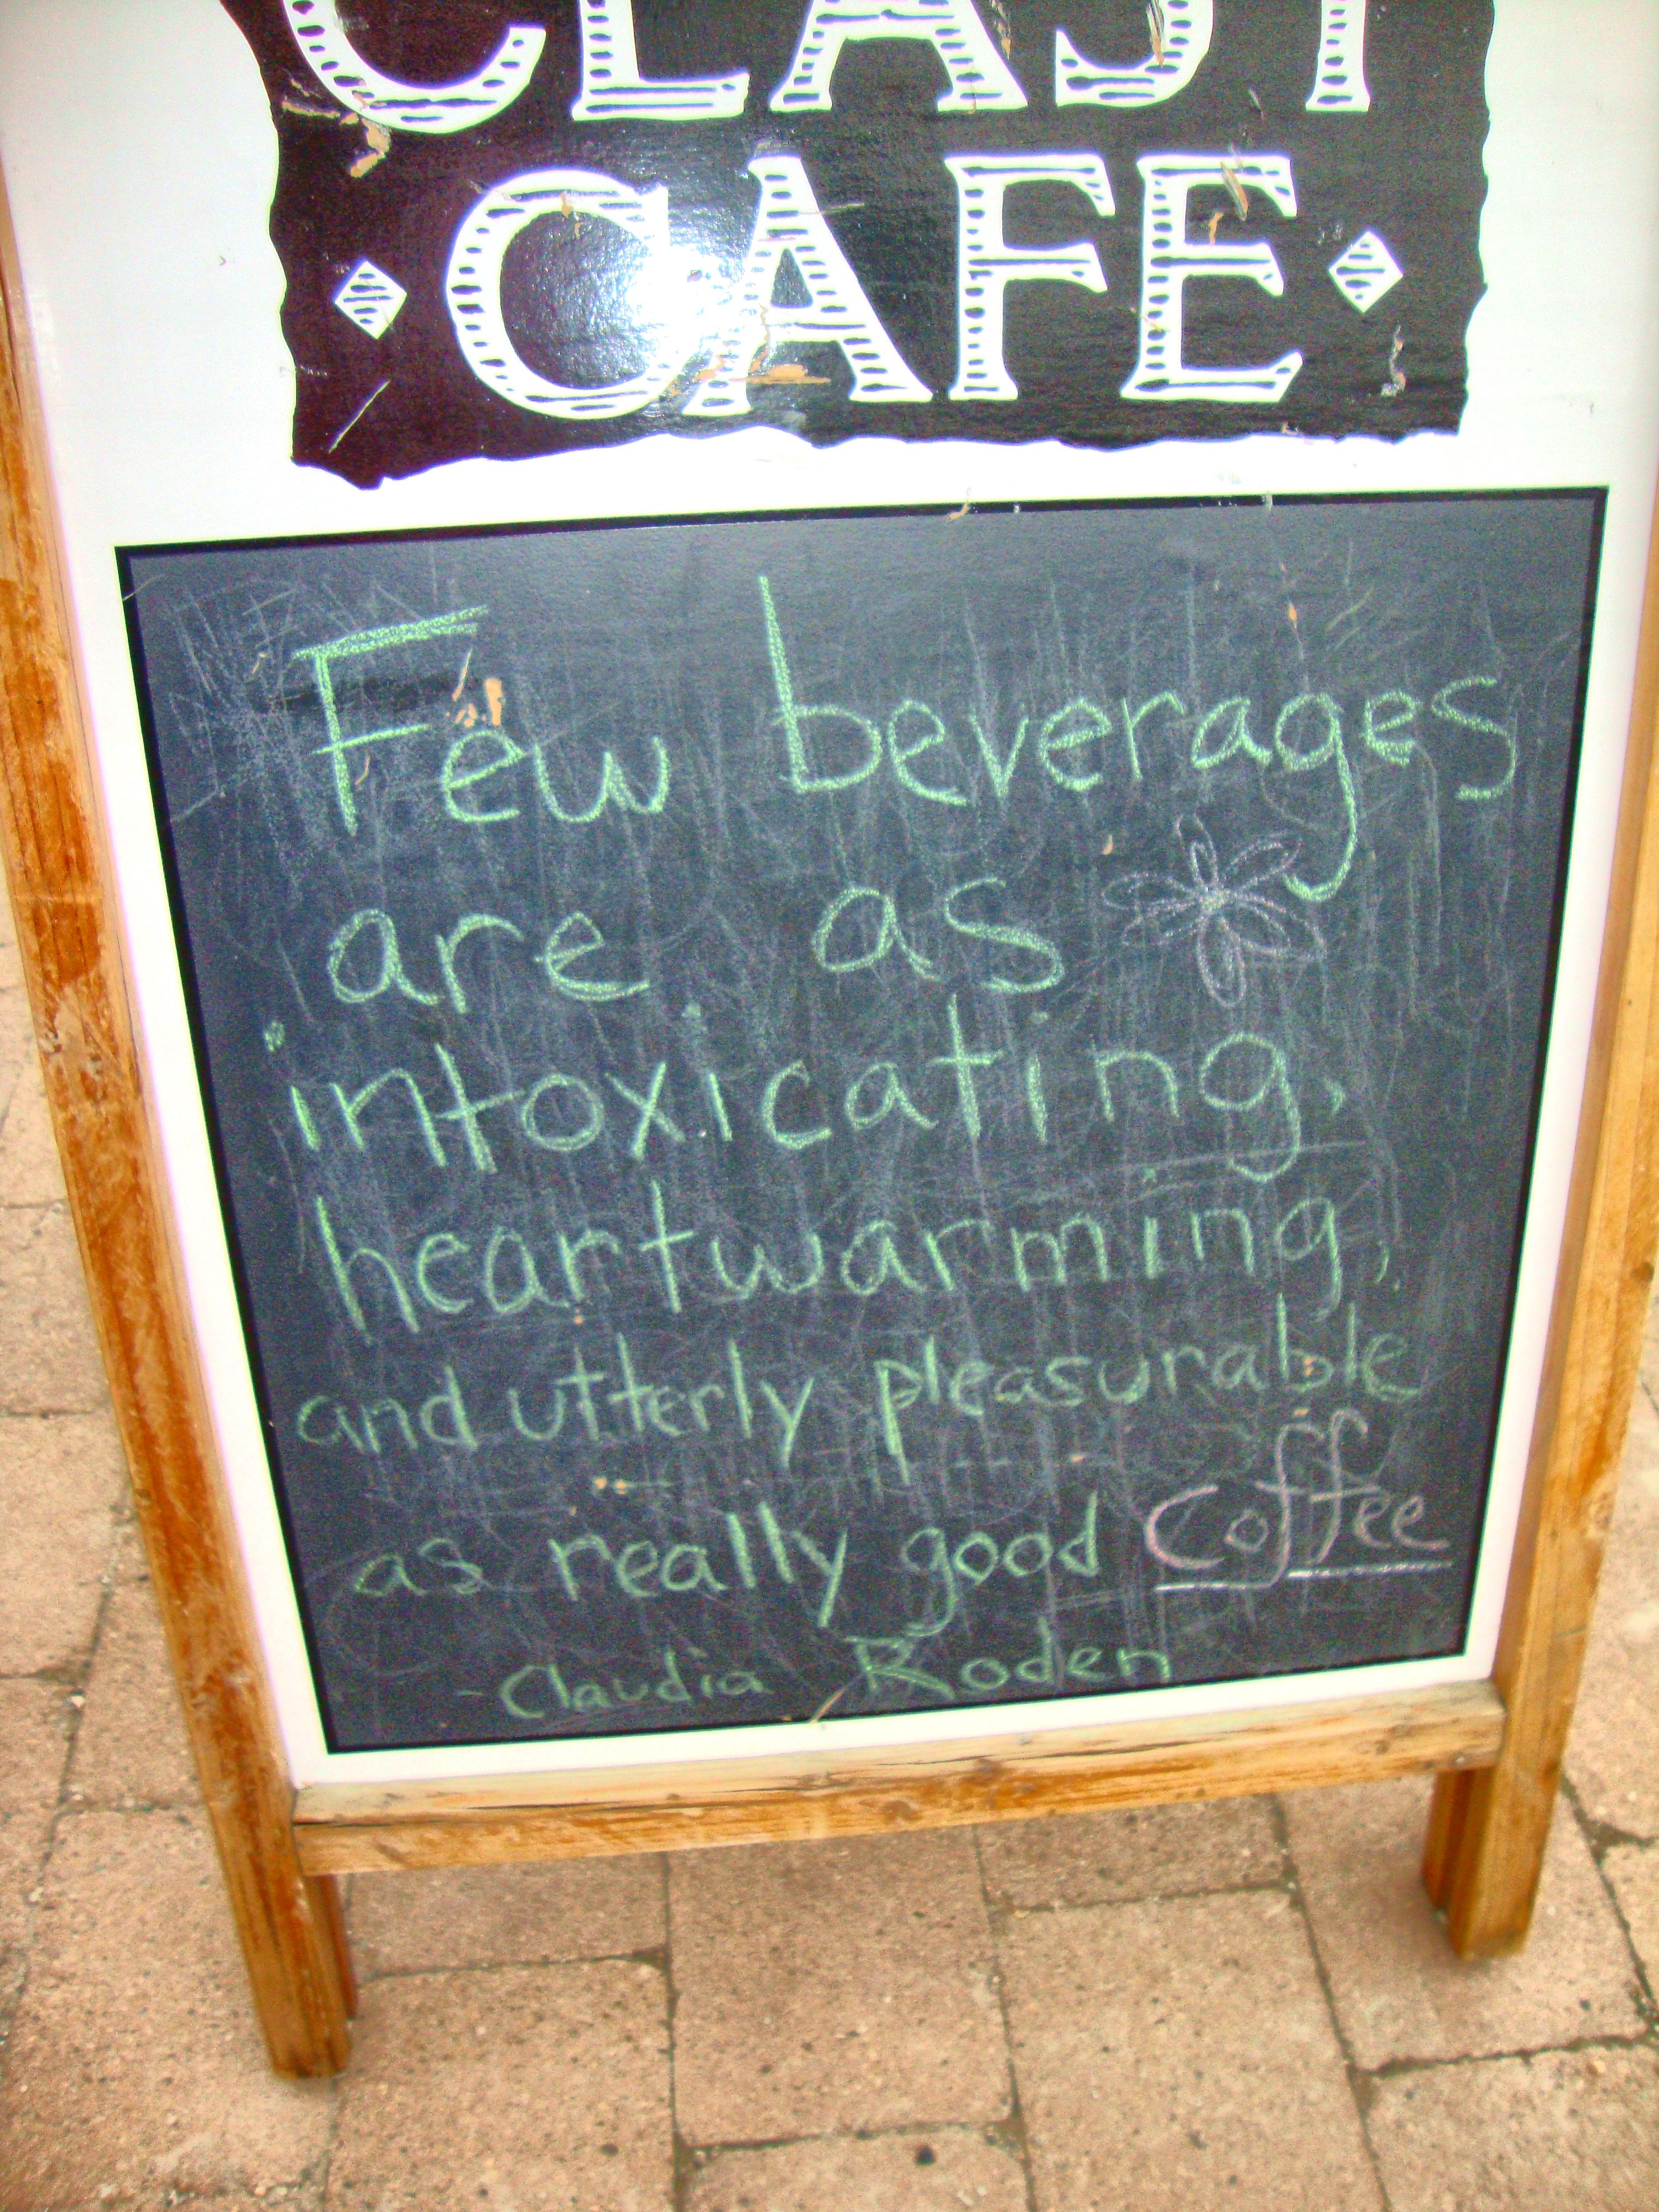 CLAST
CAFE
Few beverages
are as
intoxicating,
heartwarming,
and utterly pleasurable
as really good Coffee
- Claudia Roden